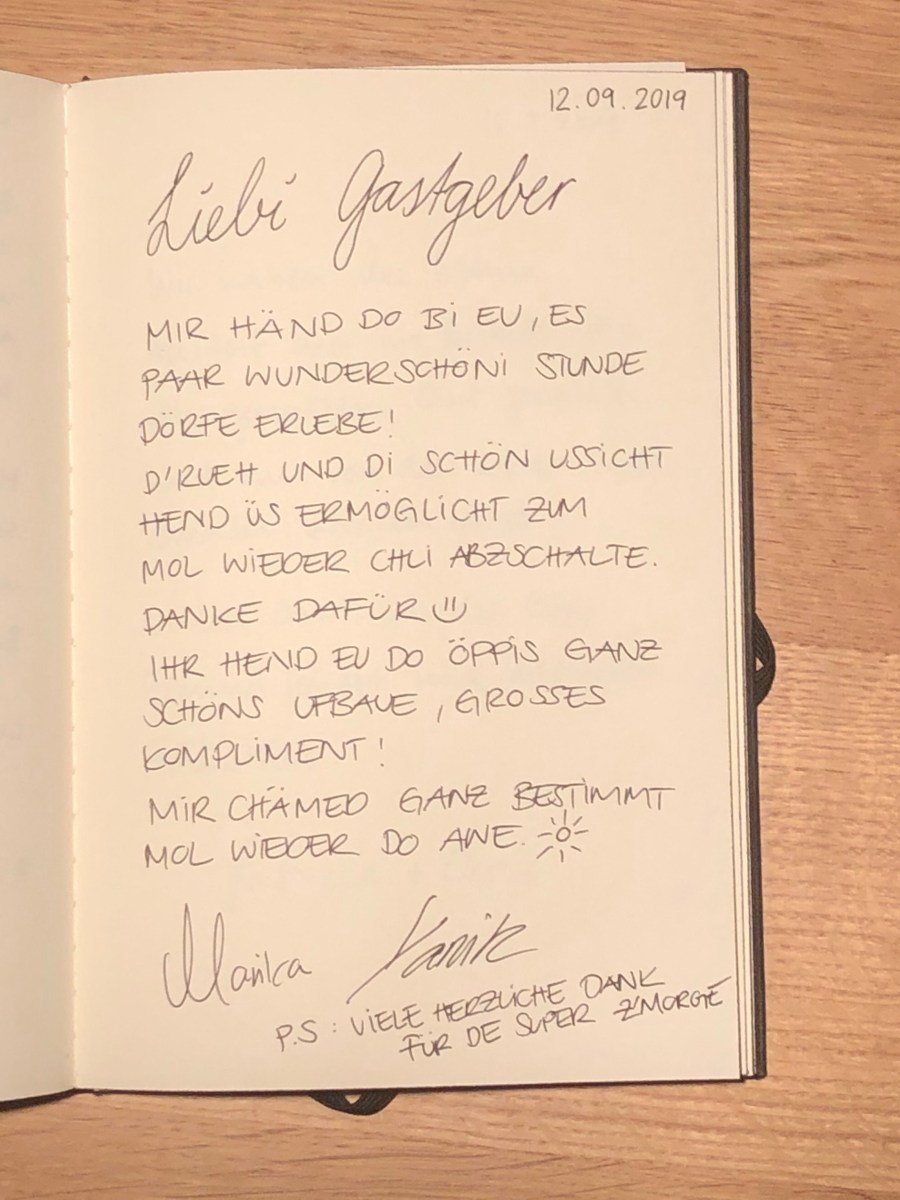 12.09.2019
Liebi Gastgeber
MIR HÄND DO Bi EU, ES
PAAR WUNDERSCHÖNi STUNDE
DÖRFE ERLEBE!
D'RUEH UND Di SCHÖN USSICHT
HEND ÜS ERMÖGLICHT ZUM
MOL WiEDER CHLi ABZSCHALTE.
DANKE DAFÜR
IHR HEND EU DO ÖPPIS GANZ
SCHÖNS UFBAUE, GROSSES
KOMPLiMENT!
MiR CHÄMED GANZ BESTIMMT
MOL WiEDER DO ANE.
Marika Yanik
P.S: ViELE HERZLiCHE DANK
FÜR DE SUPER Z'MORGE